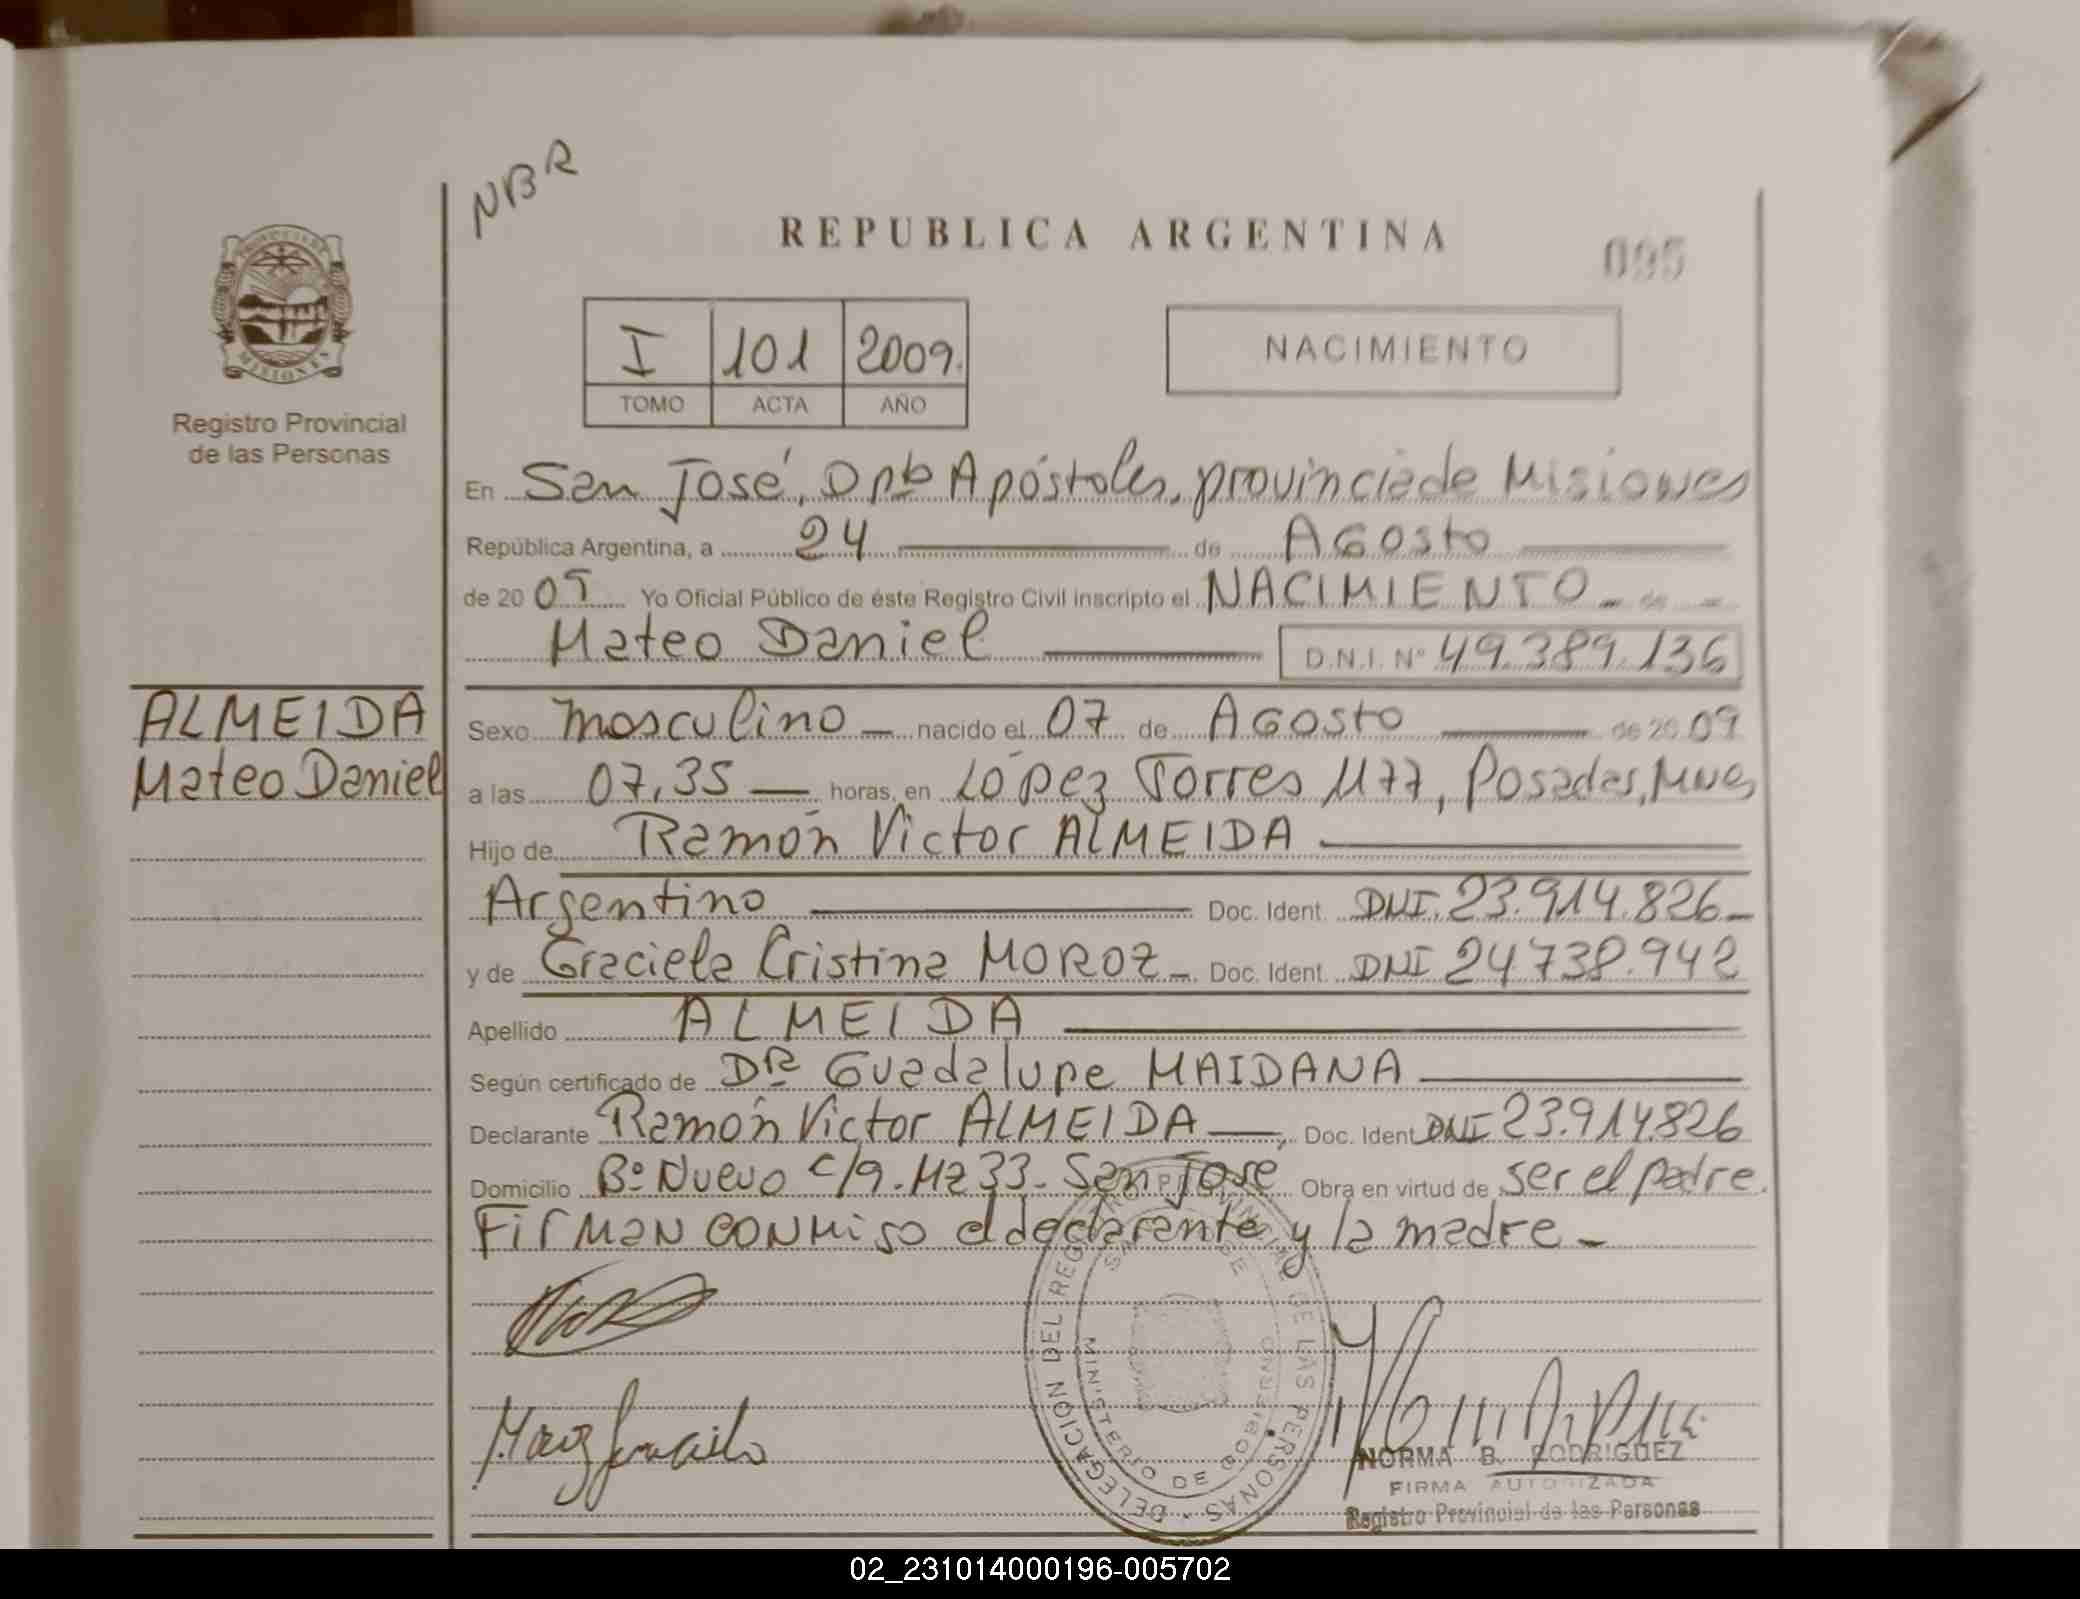 NBR
REPUBLICA ARGENTINA
095
I 101 2009.
TOMO ACTA AÑO
NACIMIENTO
MISIONES
Registro Provincial
de las Personas
En San José, Dpto Apóstoles, provincia de Misiones
República Argentina, a 24 de Agosto
de 20 09 Yo Oficial Público de éste Registro Civil inscripto el NACIMIENTO de
Mateo Daniel D.N.I. Nº 49.389.136
ALMEIDA
Mateo Daniel
Sexo masculino nacido el 07 de Agosto de 20 09
a las 07,35 horas, en López Torres 1177, Posadas, Mnes
Hijo de Ramón Victor ALMEIDA
Argentino Doc. Ident. DNI. 23.914.826
y de Graciela Cristina MOROZ Doc. Ident. DNI 24738.942
Apellido ALMEIDA
Según certificado de Dra Guadalupe MAIDANA
Declarante Ramón Victor ALMEIDA, Doc. Ident DNI 23.914.826
Domicilio Bº Nuevo c/9. Mz 33. San José Obra en virtud de ser el padre.
Firman conmigo el declarante y la madre
DELEGACION DEL REGISTRO PROVINCIAL DE LAS PERSONAS
MINISTERIO DE GOBIERNO
NORMA B. RODRIGUEZ
FIRMA AUTORIZADA
Registro Provincial de las Personas
02_231014000196-005702